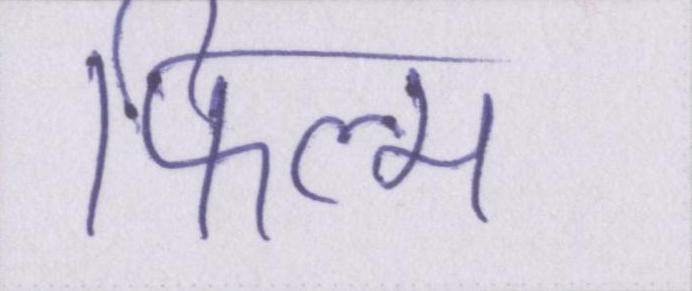 फिल्म